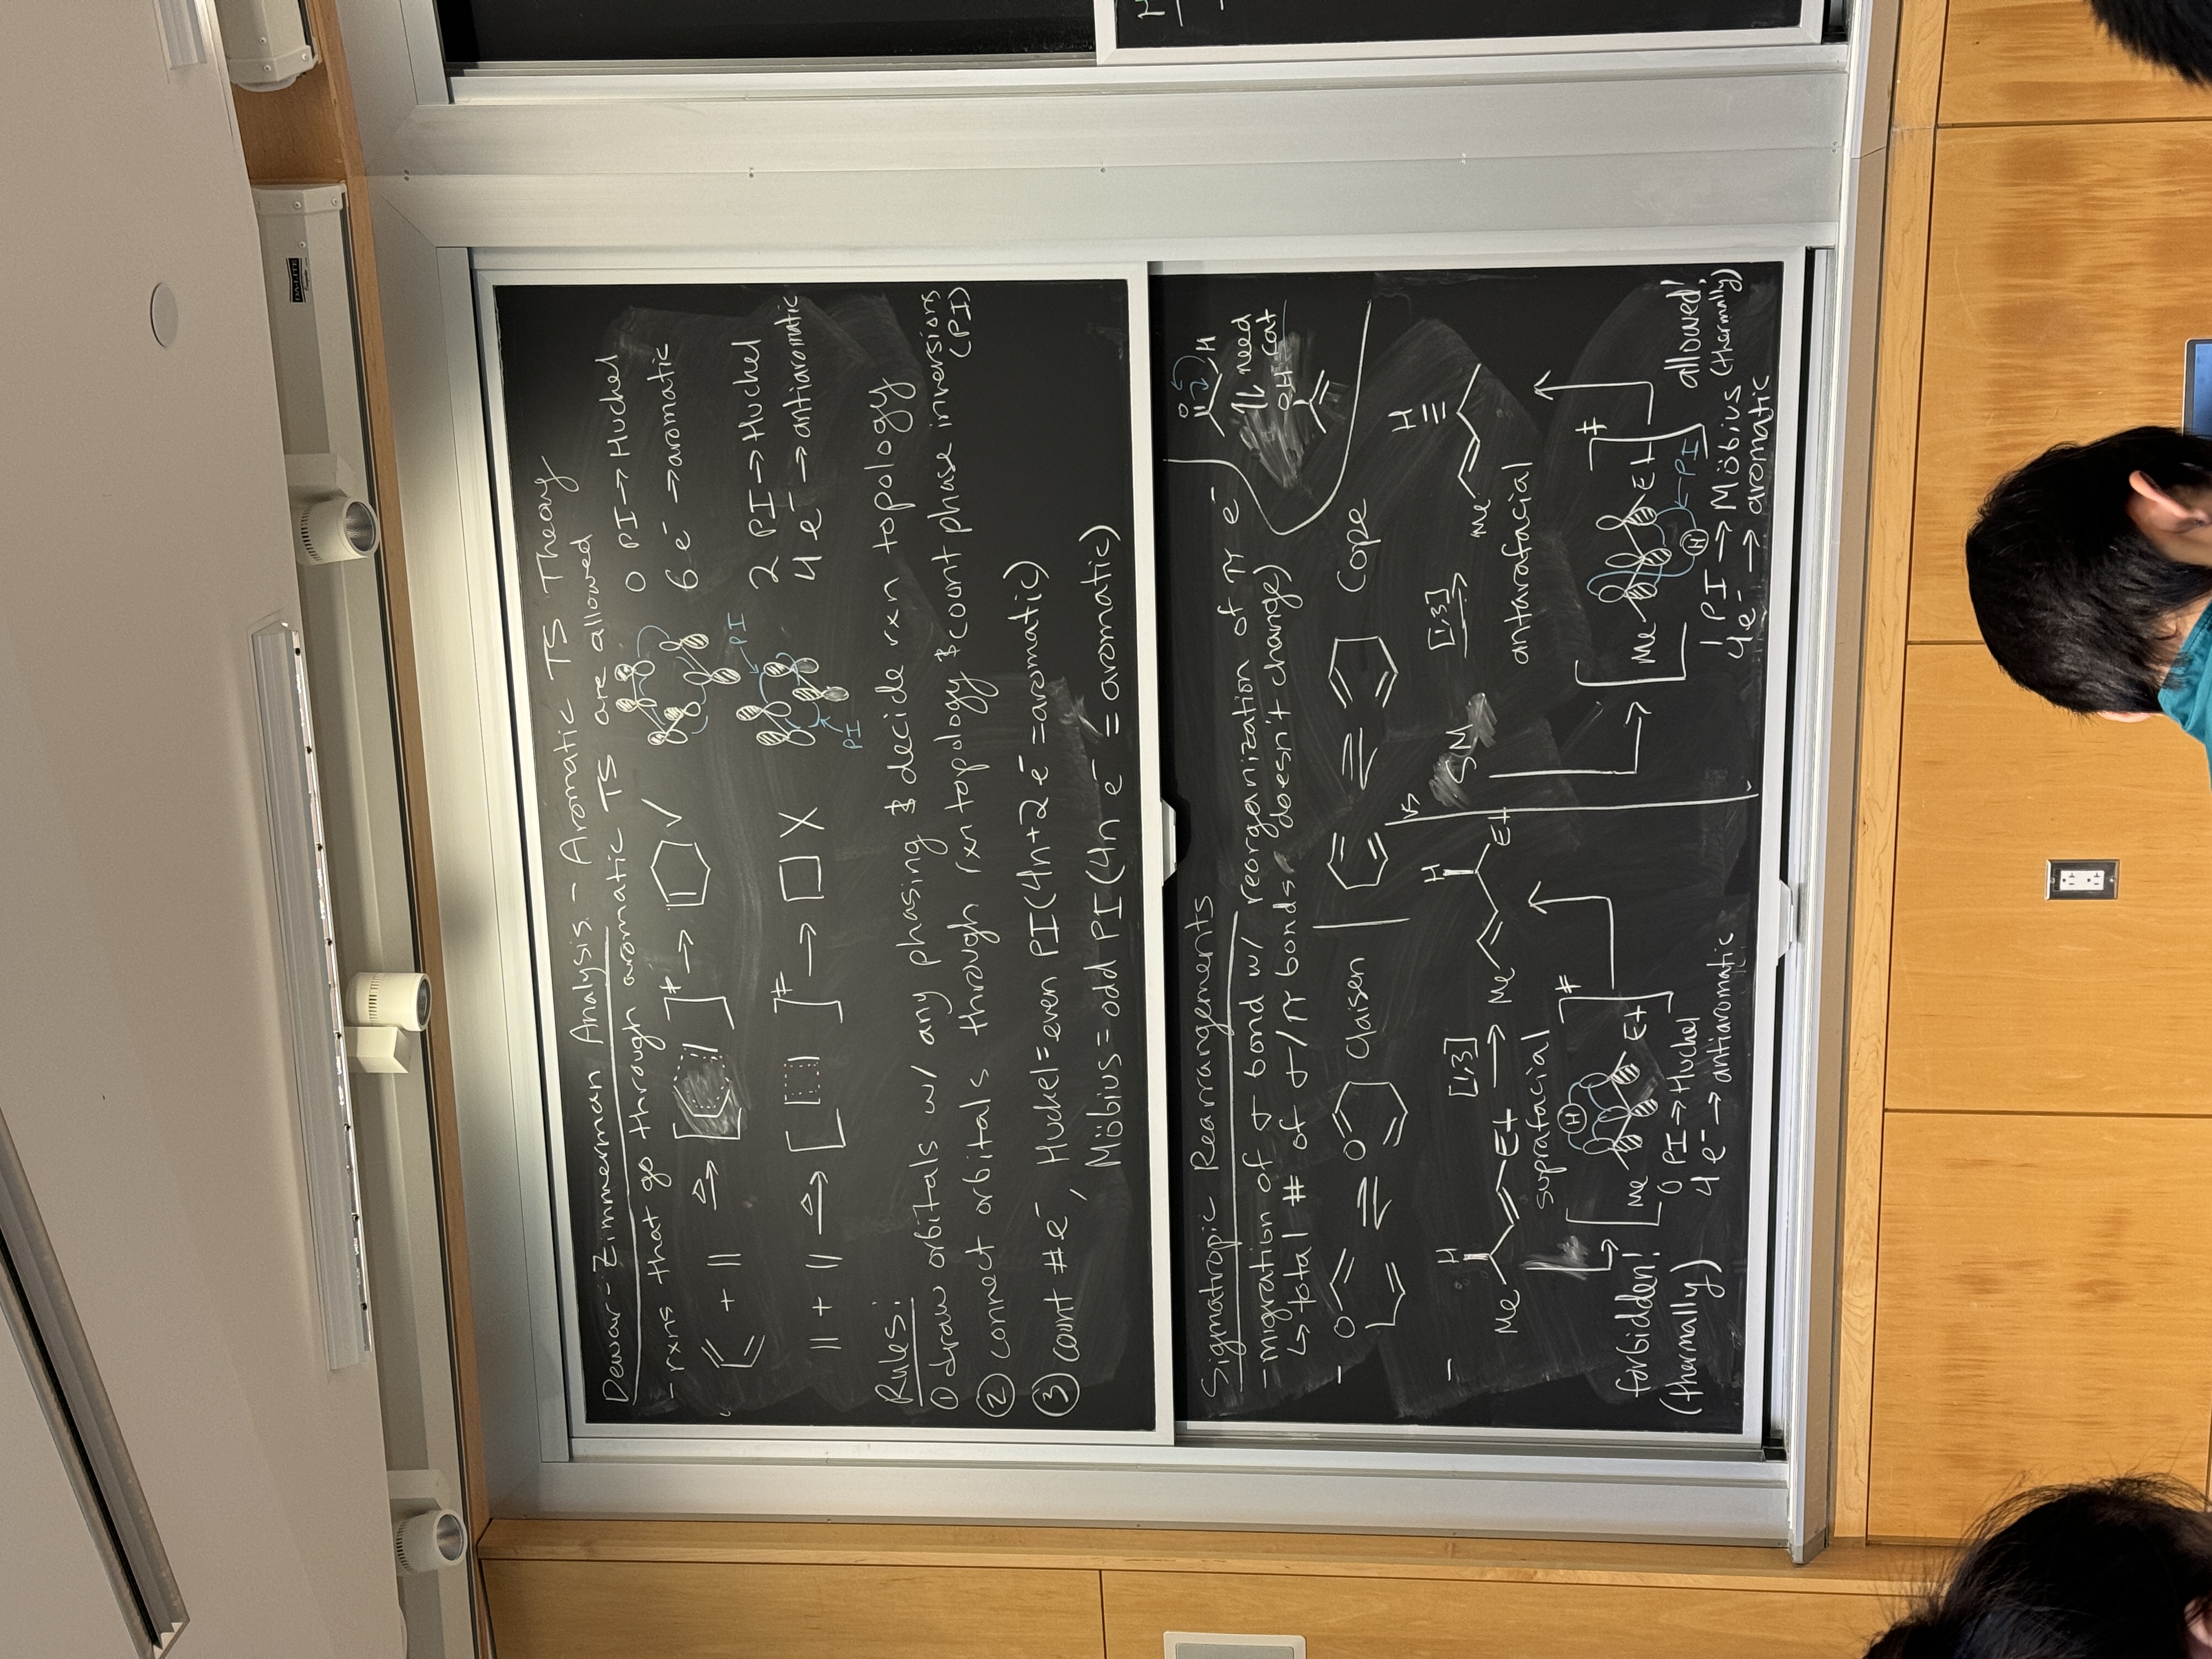 DA-LITE
Dewar-Zimmerman Analysis - Aromatic TS Theory
- rxns that go through aromatic TS are allowed
+ || Δ → [ ]‡ → ✓
0 PI → Huckel
6 e⁻ → aromatic
|| + || Δ → [ ]‡ → □ X
PI
PI
2 PI → Huckel
4 e⁻ → antiaromatic
Rules:
① draw orbitals w/ any phasing & decide rxn topology
② connect orbitals through rxn topology & count phase inversions
(PI)
③ count # e⁻, Huckel = even PI (4n+2 e⁻ = aromatic)
Möbius = odd PI (4n e⁻ = aromatic)
Sigmatropic Rearrangements
- migration of σ bond w/ reorganization of π e⁻
↳ total # of σ/π bonds doesn't change)
O H
⇌ need
cat
OH
- O ⇌ O Claisen | ⇌ Cope
- H
Me Et
[1,3] →
H
Me Et
suprafacial
[ H Me Et ]‡
forbidden!
(thermally)
0 PI → Huckel
4 e⁻ → antiaromatic
vs
SM [1,3] →
H
Me
antarafacial
[ Me Et H ]‡
← PI
allowed!
(thermally)
1 PI → Möbius
4e⁻ → aromatic